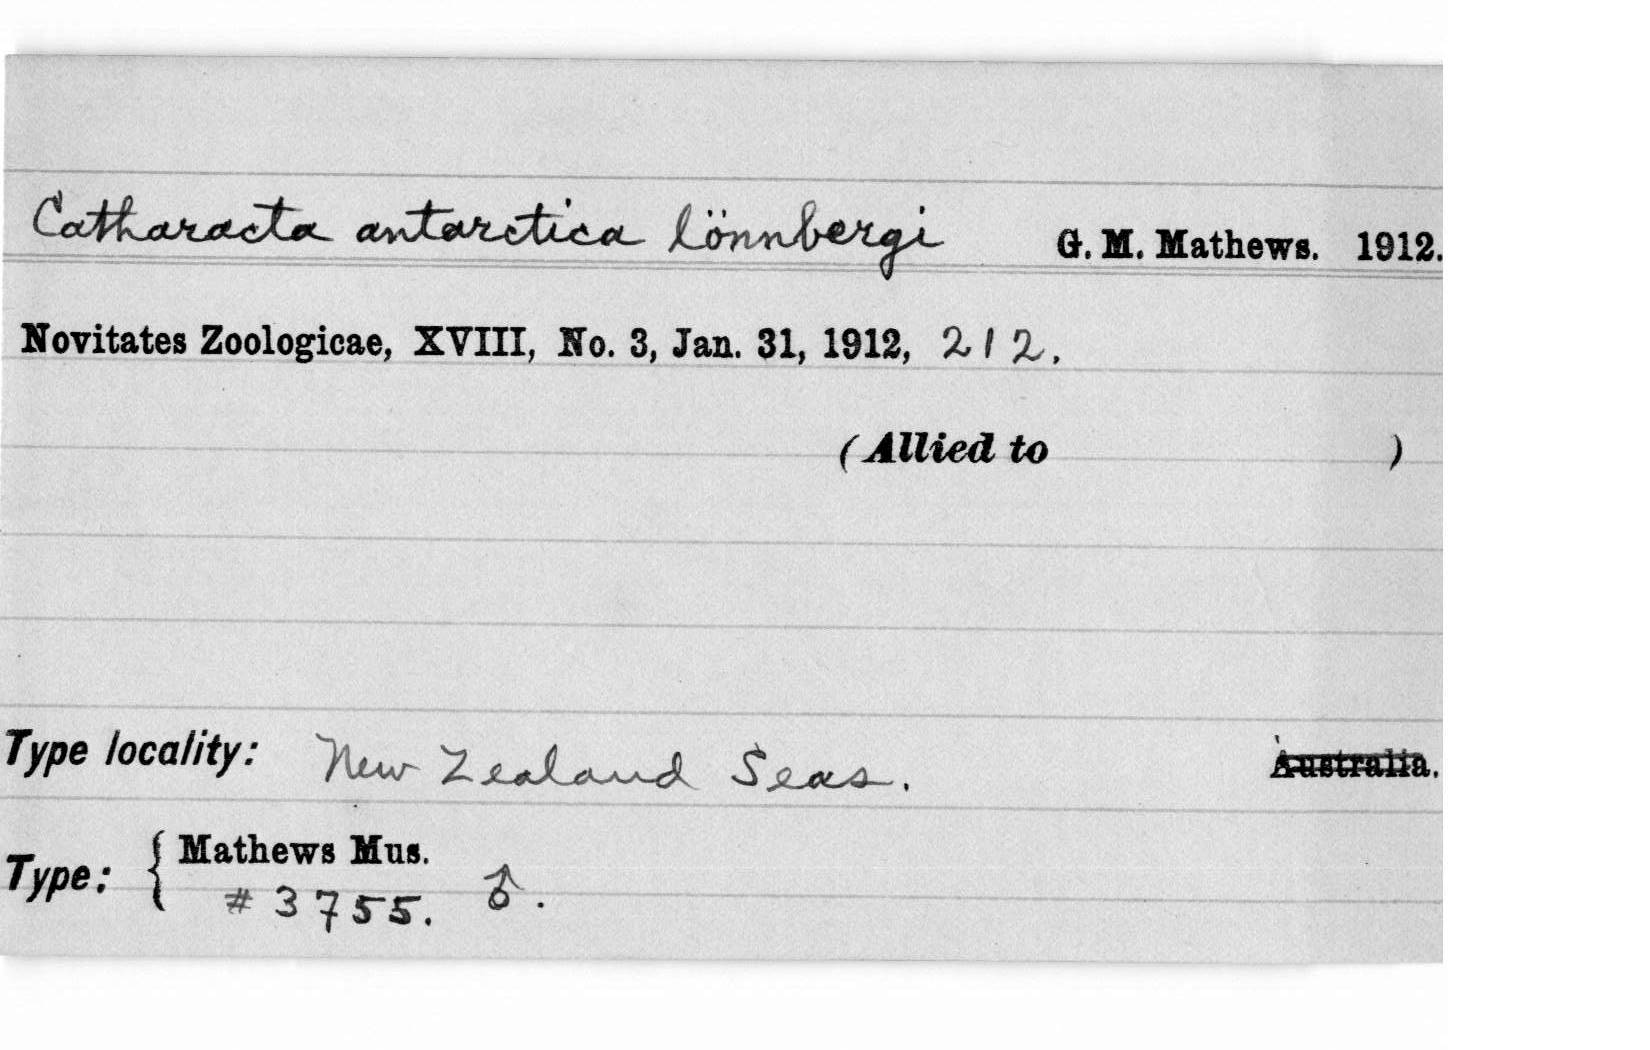 Catharacta antarctica lönnbergi G. M. Mathews. 1912.
Novitates Zoologicae, XVIII, No. 3, Jan. 31, 1912, 212.
(Allied to )
Type locality: New Zealand Seas. Australia.
Type: { Mathews Mus.
# 3755. ♂.